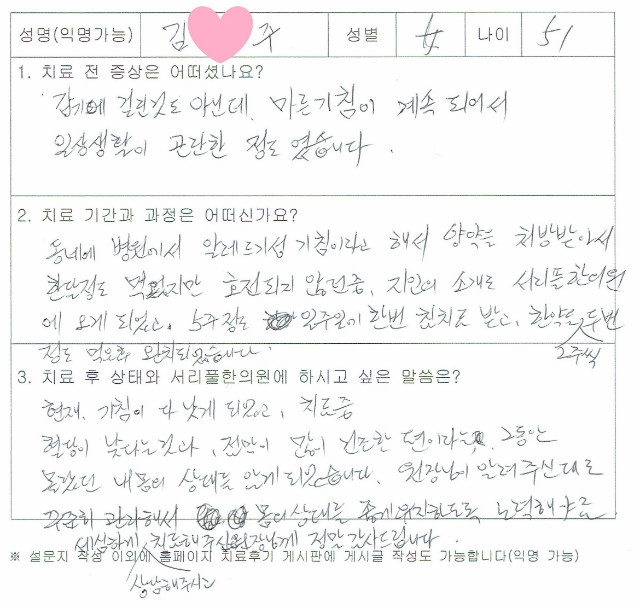 성명(익명가능) 김 주 성별 女 나이 51
1. 치료 전 증상은 어떠셨나요?
감기에 걸린것도 아닌데, 마른기침이 계속 되어서
일상생활이 곤란한 정도 였습니다.
2. 치료 기간과 과정은 어떠신가요?
동네에 병원에서 알레르기성 기침이라고 해서 양약을 처방받아서
한달정도 먹었지만 호전되지 않던중, 지인의 소개로 서리풀한의원
에 오게 되었고. 5주정도 일주일에 한번 침치료 받고, 한약을 2주씩 두번
정도 먹으며 완치되었습니다.
3. 치료 후 상태와 서리풀한의원에 하시고 싶은 말씀은?
현재. 기침이 다 낫게 되었고, 치료중
혈당이 낮다는것과, 전반이 많이 건조한 편이라는, 그동안
몰랐던 내몸의 상태를 알게되었습니다. 원장님이 알려주신대로
꾸준히 관리해서 몸의상태를 좋게유지하도록 노력해야죠
세심하게 상담해주시고 치료해주신 원장님께 정말 감사드립니다.
※ 설문지 작성 이외에 홈페이지 치료후기 게시판에 게시글 작성도 가능합니다(익명 가능)